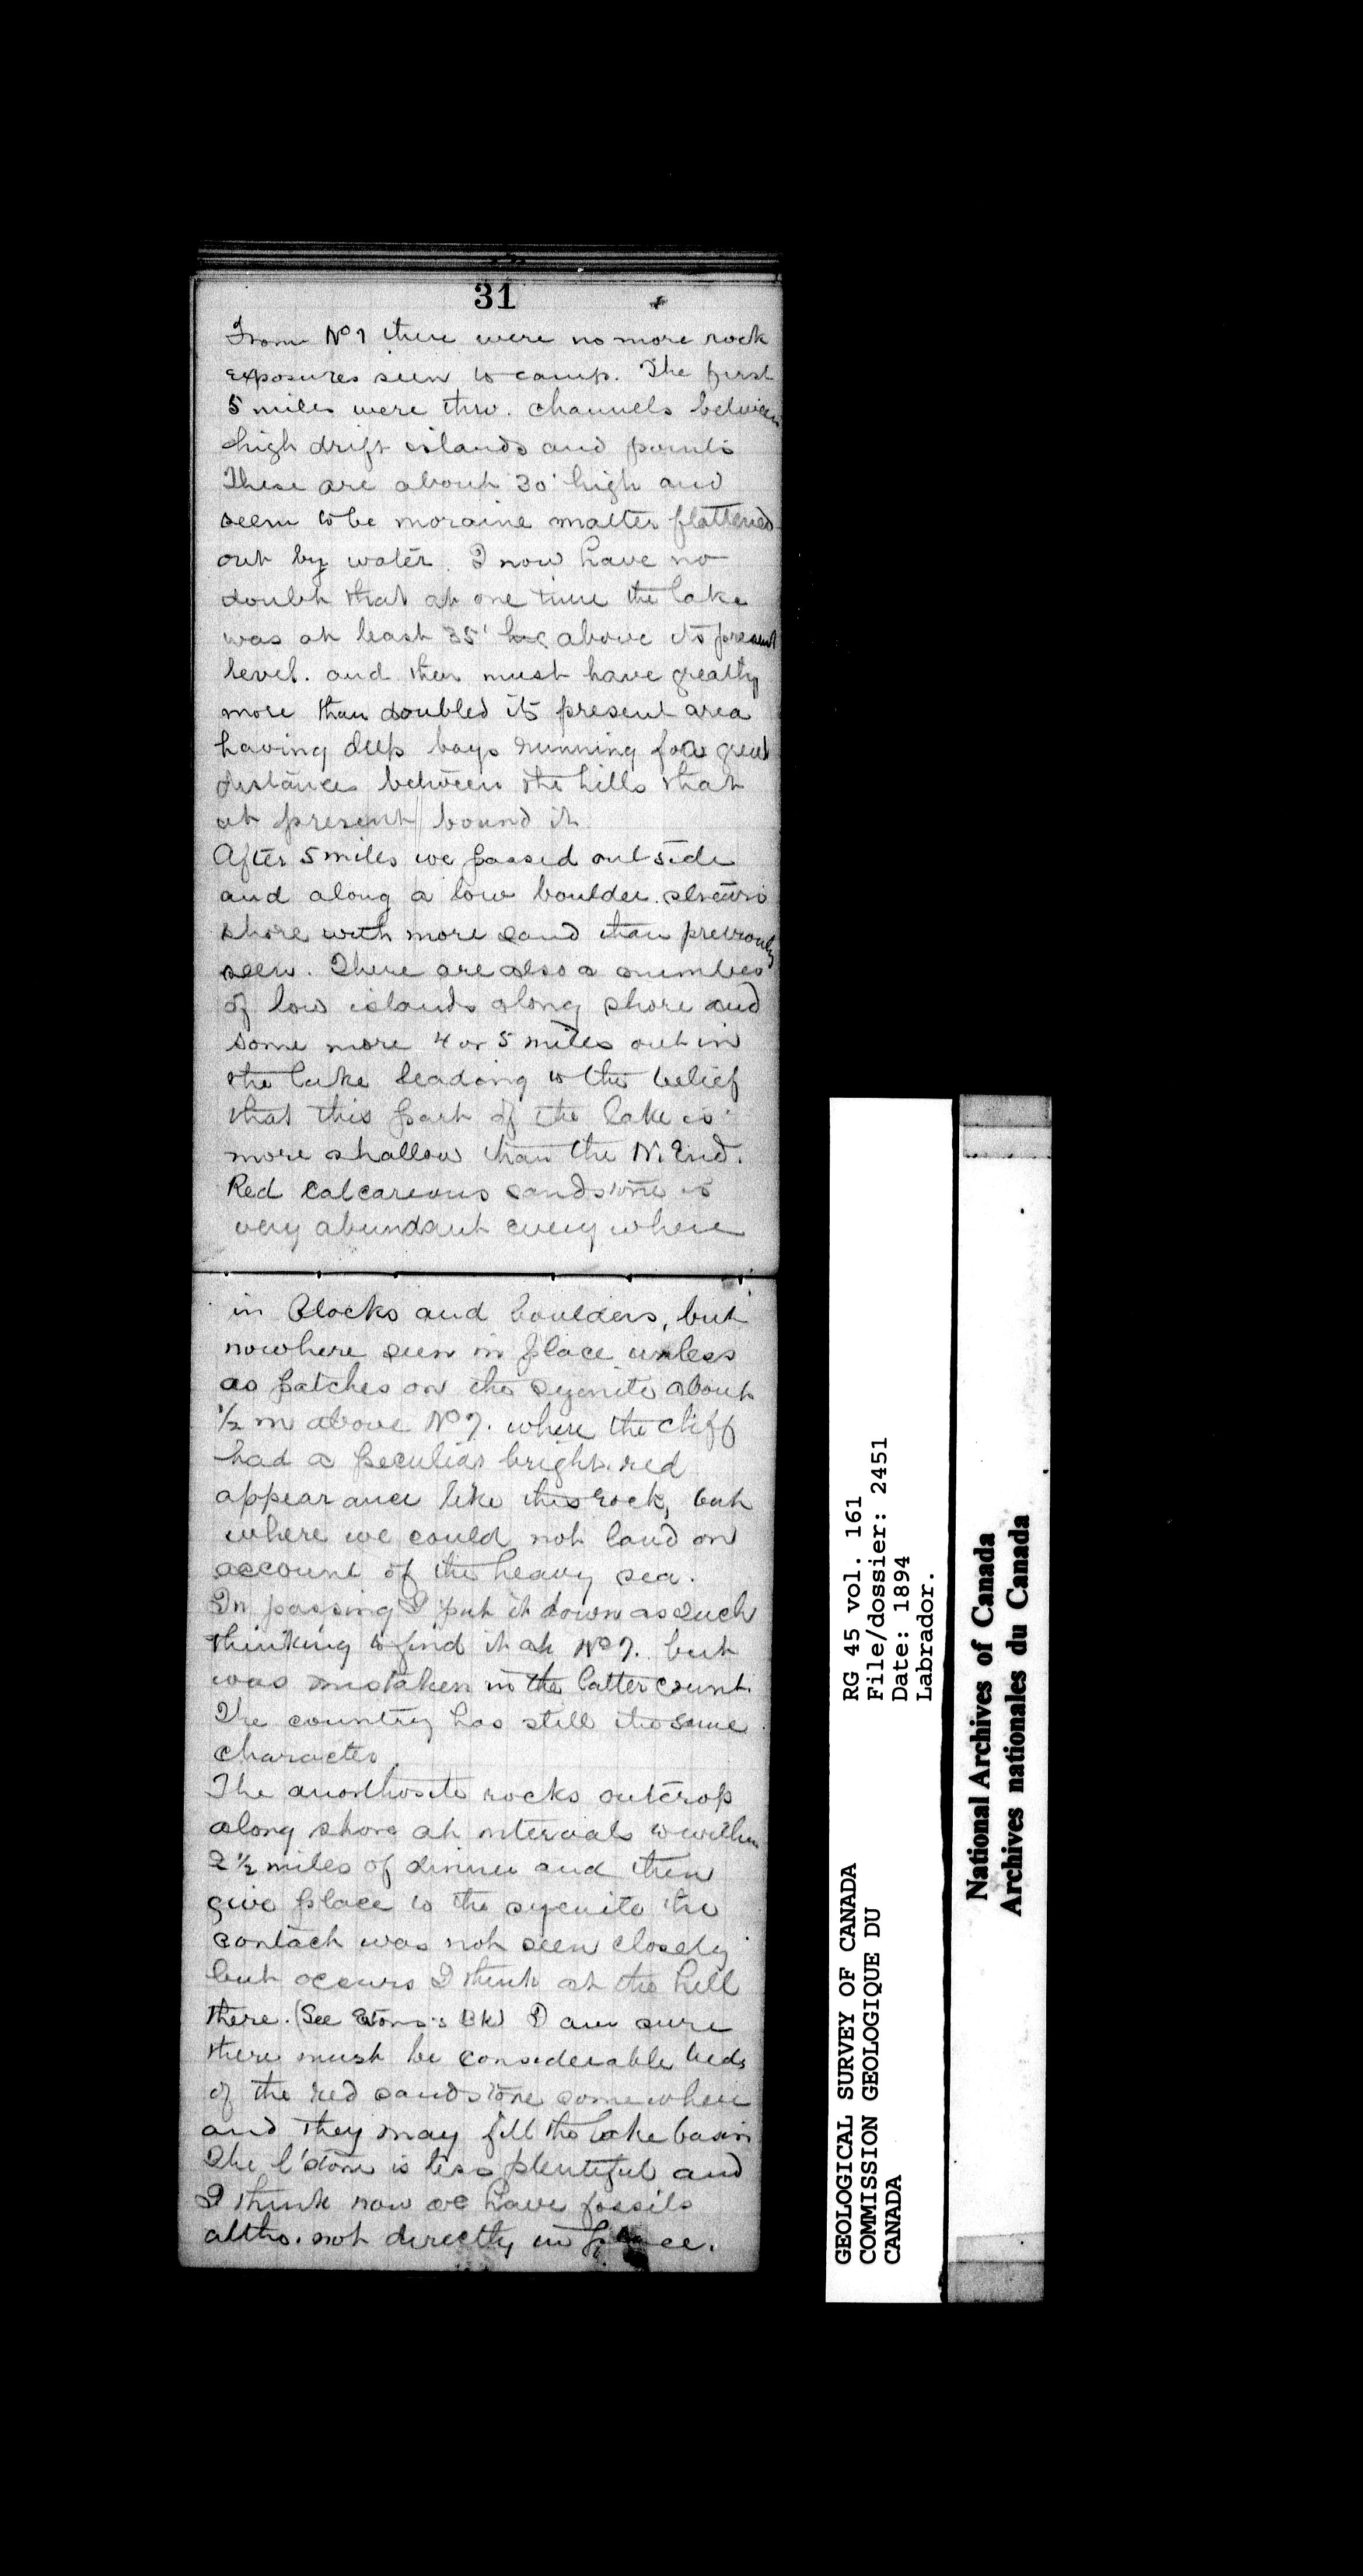 31
From No 7 there were no more rock
exposures seen to camp. The first
5 miles were thro. channels between
high drift islands and points
These are about 30' high and
seem to be moraine matter flattened
out by water. I now have no
doubt that at one time the lake
was at least 35' above its present
level. and then must have greatly
more than doubled its present area
having deep bays running for a great
distances between the hills that
at present bound it.
After 5 miles we passed outside
and along a low boulder strewn
shore with more sand than previously
seen. There are also a number
of low islands along shore and
some more 4 or 5 miles out in
the lake leading to the belief
that this part of the lake is
more shallow than the N. End.
Red calcareous sandstone is
very abundant every where
in blocks and boulders, but
nowhere seen in place unless
as patches on the syenite about
1/2 m above No 7. where the cliff
had a peculiar bright red
appearance like this rock, but
where we could not land on
account of the heavy sea.
In passing I put it down as such
thinking to find it at No 7. but
was mistaken in the latter count.
The country has still the same
character
The anorthosite rocks outcrop
along shore at intervals to within
2 1/2 miles of dinner and then
give place to the syenite the
contact was not seen closely
but occurs I think at the hill
there. (See Eaton's Bk) I am sure
there must be considerable beds
of the red sandstone somewhere
and they may fill the lake basin
The l'stone is less plentiful and
I think now we have fossils
altho. not directly in place.
RG 45 vol. 161
File/dossier: 2451
Date: 1894
Labrador.
GEOLOGICAL SURVEY OF CANADA
COMMISSION GEOLOGIQUE DU
CANADA
National Archives of Canada
Archives nationales du Canada